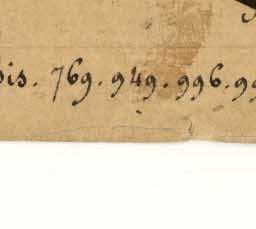 ois. 769. 949. 996. 99